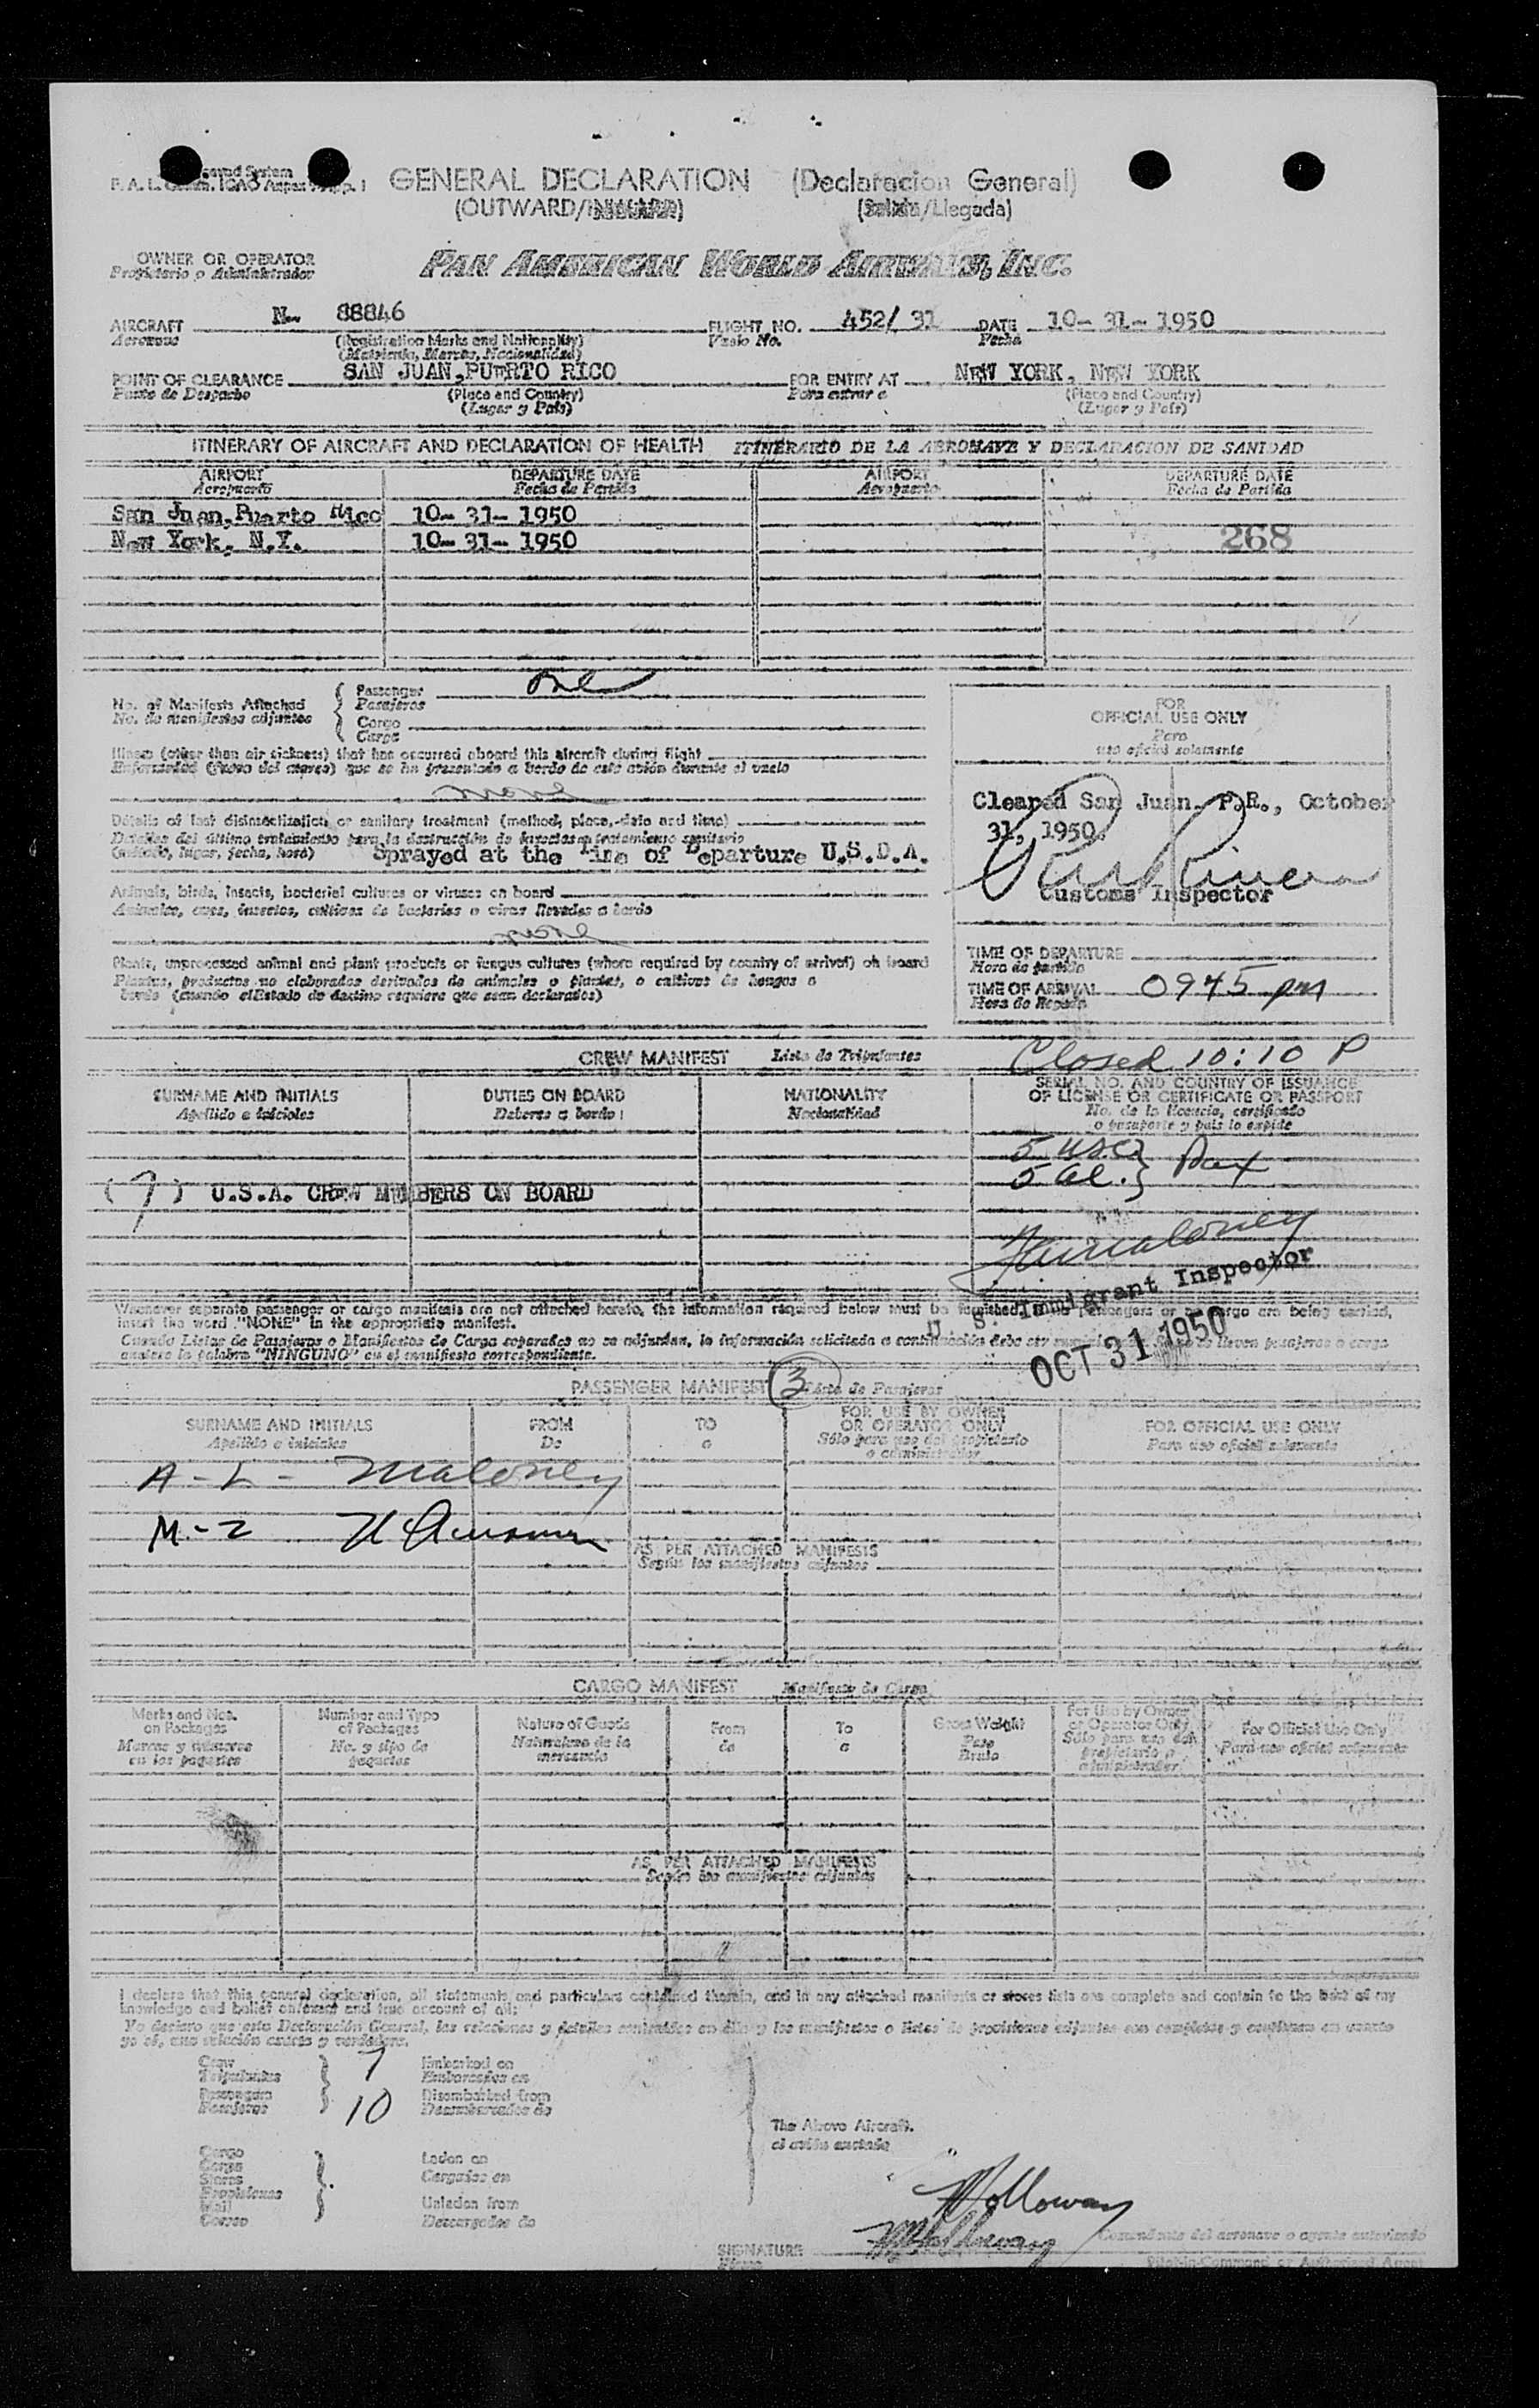 GENERAL DECLARATION (Declaracion General)
(OUTWARD/INWARD) (Salida/Llegada)
OWNER OR OPERATOR
Propietario o Administrador
PAN AMERICAN WORLD AIRWAYS, INC.
AIRCRAFT N- 88846 FLIGHT NO. 452/ 31 DATE 10- 31- 1950
Aeronave (Registration Marks and Nationality) Vuelo No. Fecha
(Matricula, Marcas, Nacionalidad)
POINT OF CLEARANCE SAN JUAN, PUERTO RICO FOR ENTRY AT NEW YORK, NEW YORK
Punto de Despacho (Place and Country) Para entrar a (Place and Country)
(Lugar y País) (Lugar y País)
ITINERARY OF AIRCRAFT AND DECLARATION OF HEALTH ITINERARIO DE LA AERONAVE Y DECLARACION DE SANIDAD
AIRPORT DEPARTURE DATE AIRPORT DEPARTURE DATE
Aeropuerto Fecha de Partida Aeropuerto Fecha de Partida
San Juan, Puerto Rico 10- 31- 1950
New York, N.Y. 10- 31- 1950 268
No. of Manifests Attached
No. de manifiestos adjuntos
Passenger one
Pasajeros
Cargo
Carga
Illness (other than air sickness) that has occurred aboard this aircraft during flight
Enfermedad (fuera del mareo) que se ha presentado a bordo de este avión durante el vuelo
none
Details of last disinsectization or sanitary treatment (method, place, date and time)
Detalles del último tratamiento para la destrucción de insectos o tratamiento sanitario
(método, lugar, fecha, hora) Sprayed at the Time of Departure U.S.D.A.
Animals, birds, insects, bacterial cultures or viruses on board
Animales, aves, insectos, cultivos de bacterias o virus llevados a bordo
none
Plants, unprocessed animal and plant products or fungus cultures (where required by country of arrival) on board
Plantas, productos no elaborados derivados de animales o plantas, o cultivos de hongos a
bordo (cuando el Estado de destino requiere que sean declarados)
FOR
OFFICIAL USE ONLY
Para
uso oficial solamente
Cleared San Juan, P.R., October
31, 1950.
Customs Inspector
TIME OF DEPARTURE
Hora de partida
TIME OF ARRIVAL 0945 pm
Hora de llegada
CREW MANIFEST Lista de Tripulantes Closed 10:10 P
SURNAME AND INITIALS DUTIES ON BOARD NATIONALITY SERIAL NO. AND COUNTRY OF ISSUANCE
OF LICENSE OR CERTIFICATE OR PASSPORT
Apellido e iniciales Deberes a bordo Nacionalidad No. de la licencia, certificado
o pasaporte y país lo expide
5 USC
5 al. } Pax
(7) U.S.A. CREW MEMBERS ON BOARD
Maloney
U. S. Immigrant Inspector
OCT 31 1950
Whenever separate passenger or cargo manifests are not attached hereto, the information required below must be furnished. passengers or cargo are being carried,
insert the word "NONE" in the appropriate manifest.
Cuando Listas de Pasajeros o Manifiestos de Carga separados no se adjuntan, la información solicitada a continuación debe ser lleven pasajeros o carga
anótese la palabra "NINGUNO" en el manifiesto correspondiente.
PASSENGER MANIFEST 3 Lista de Pasajeros
SURNAME AND INITIALS FROM TO FOR USE BY OWNER
OR OPERATOR ONLY FOR OFFICIAL USE ONLY
Apellido e iniciales De a Sólo para uso del propietario
o administrador Para uso oficial solamente
A - L - Maloney
M. - 2
AS PER ATTACHED MANIFESTS
Según los manifiestos adjuntos
CARGO MANIFEST Manifiesto de Carga
Marks and Nos.
on Packages
Marcas y números
en los paquetes
Number and Type
of Packages
No. y tipo de
paquetes
Nature of Goods
Naturaleza de la
mercancía
From
de
To
a
Gross Weight
Peso
Bruto
For Use by Owner
or Operator Only
Sólo para uso del
propietario o
administrador
For Official Use Only
Para uso oficial solamente
AS PER ATTACHED MANIFESTS
Según los manifiestos adjuntos
I declare that this general declaration, all statements and particulars contained therein, and in any attached manifests or stores lists are complete and contain to the best of my
knowledge and belief an exact and true account of all:
Yo declaro que esta Declaración General, las relaciones y detalles contenidos en ella y los manifiestos o listas de provisiones adjuntas son completos y contienen en cuanto
yo sé, una relación exacta y verdadera.
Crew 7 Embarked on
Tripulantes Embarcados en
Passengers 10 Disembarked from
Pasajeros Desembarcados de
The Above Aircraft.
el avión anotado
Cargo
Carga Laden on
Stores Cargadas en
Provisiones
Mail Unladen from
Correo Descargados de
Holloway
SIGNATURE Holloway
Firma
Comandante del aeronave o agente autorizado
Pilot-in-Command or Authorized Agent